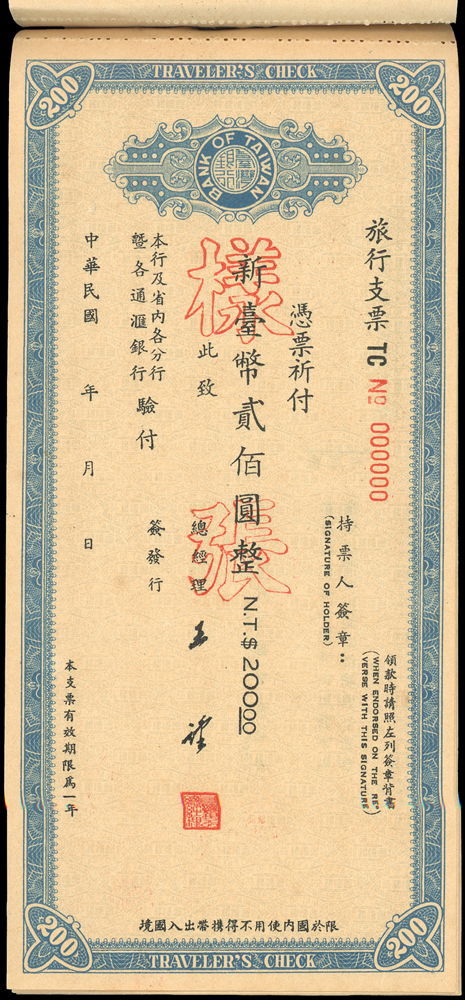 TRAVELER'S CHECK
200
200
BANK OF TAIWAN
旅行支票 TC No 000000
領款時請照左列簽章背書
(WHEN ENDORSED ON THE RE-
VERSE WITH THIS SIGNATURE)
持票人簽章：
(SIGNATURE OF HOLDER)
憑票祈付
新臺幣貳佰圓整 N.T.$ 200.00
樣張
此致
總經理
簽發行
本行及省內各分行
暨各通滙銀行
驗付
中華民國 年 月 日
本支票有效期限爲一年
境國入出帶携得不用使內國於限
200
200
TRAVELER'S CHECK